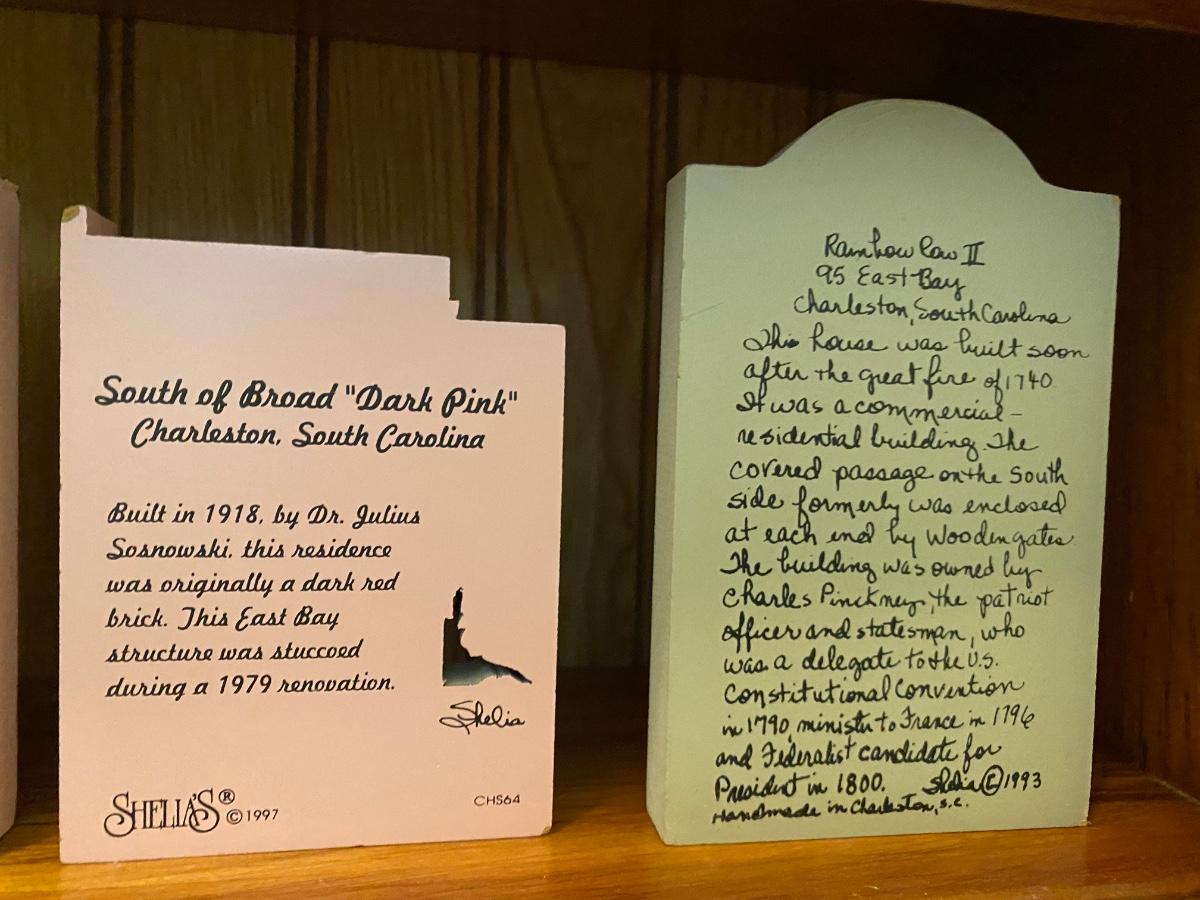 South of Broad "Dark Pink"
Charleston, South Carolina
Built in 1918, by Dr. Julius
Sosnowski, this residence
was originally a dark red
brick. This East Bay
structure was stuccoed
during a 1979 renovation.
Shelia
SHELIA'S® ©1997
CHS64
Rainbow Row II
95 East Bay
Charleston, South Carolina
This house was built soon
after the great fire of 1740.
It was a commercial-
residential building. The
covered passage on the South
side formerly was enclosed
at each end by Wooden gates.
The building was owned by
Charles Pinckney, the patriot
officer and statesman, who
was a delegate to the U.S.
Constitutional Convention
in 1790, minister to France in 1796
and Federalist candidate for
President in 1800. Shelia © 1993
Handmade in Charleston, S.C.